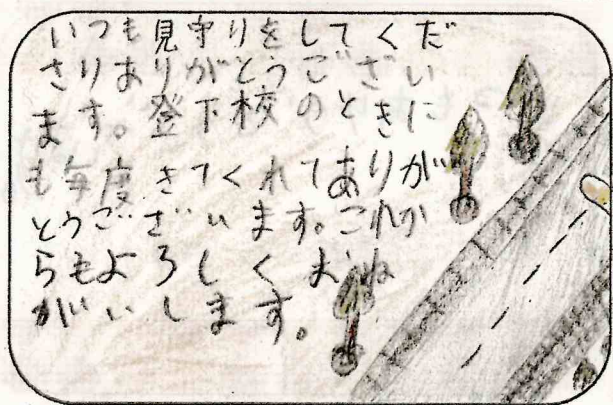 いつも見守りをしてくだ
さりありがとうござい
ます。登下校のときに
も毎度きてくれてありが
とうございます。これか
らもよろしくおね
がいします。